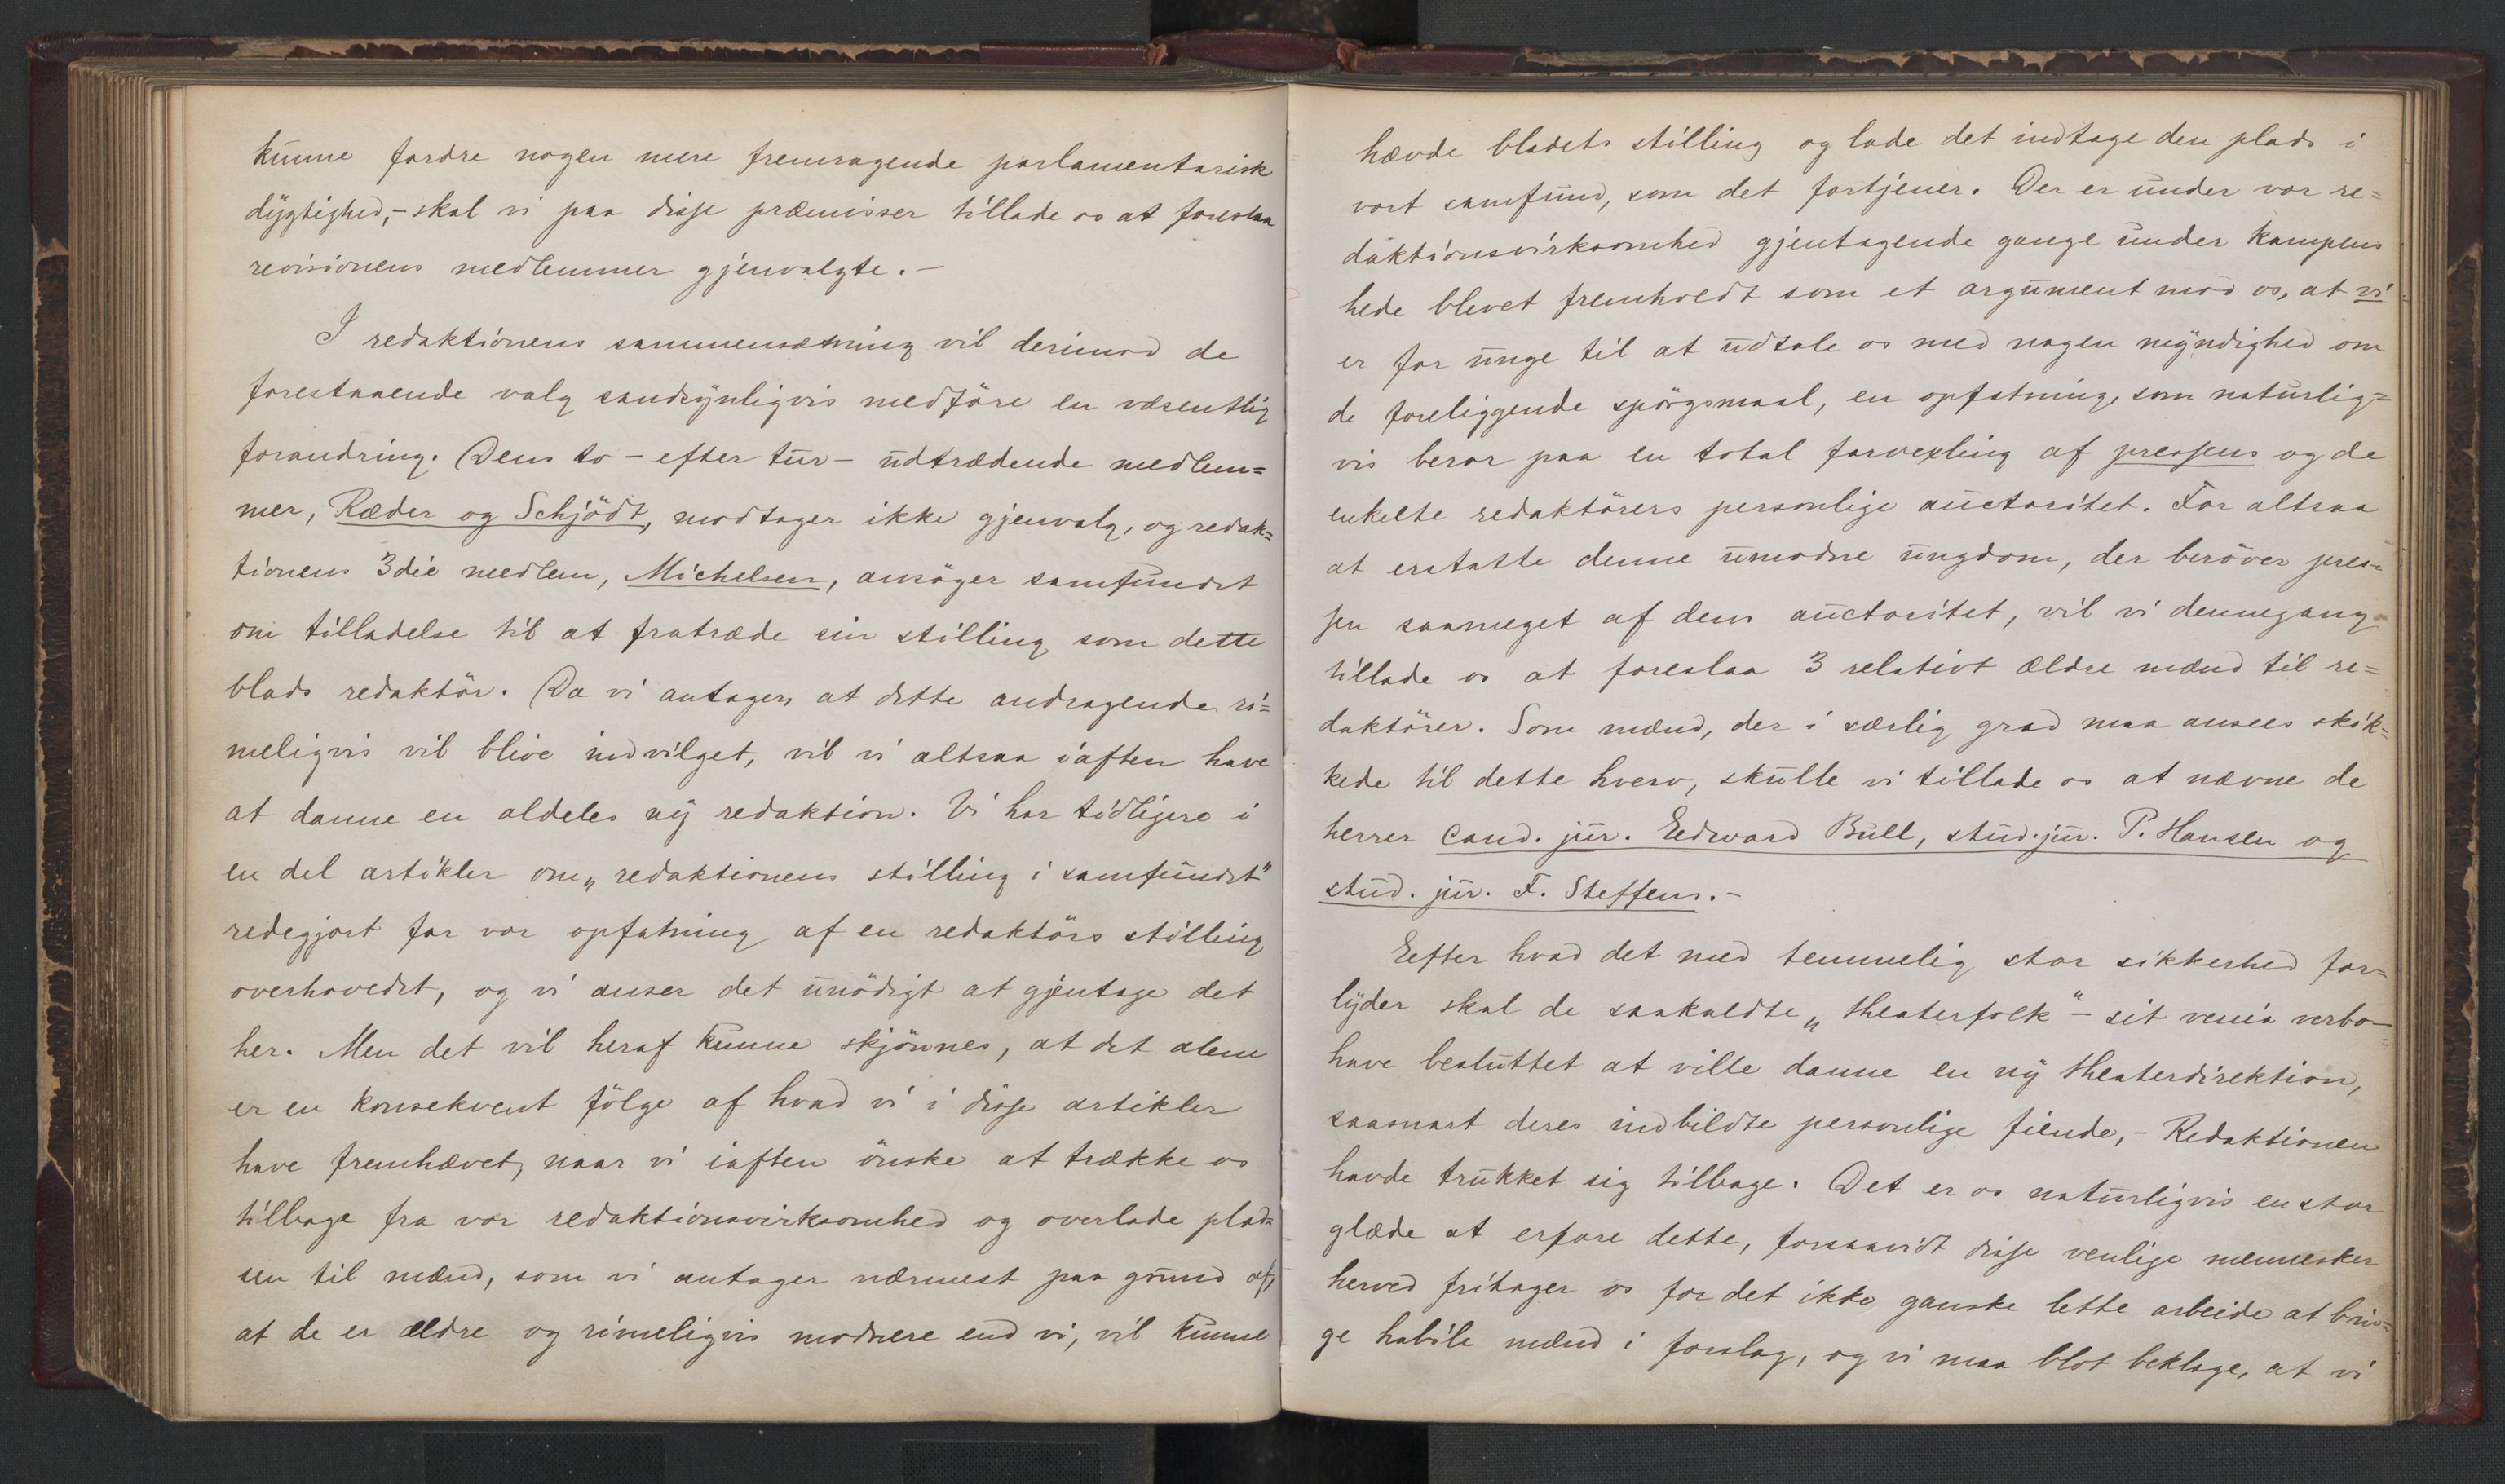 kunne fordre nogen mere fremragende parlamentarisk
dygtighed, – skal vi paa disse præmisser tillade os at foreslaa
revisionens medlemmer gjenvalgte. –
I redaktionens sammensætning vil derimod de
forestaaende valg sandsynligvis medföre en væsentlig
forandring. Dens to – efter tur – udtrædende medlem=
mer, Ræder og Schjödt, modtager ikke gjenvalg, og redak=
tionens 3die medlem, Michelsen, ansöger samfundet
om tilladelse til at fratræde sin stilling som dette
blads redaktör. Da vi antager, at dette andragende ri=
meligvis vil blive indvilget, vil vi altsaa iaften have
at danne en aldeles ny redaktion. Vi har tidligere i
en del artikler om „redaktionens stilling i samfundet"
redegjort for vor opfatning af en redaktörs stilling
overhovedet, og vi anser det unödigt at gjentage det
her. Men det vil heraf kunne skjönnes, at det alene
er en konsekvent fölge af hvad vi i disse artikler
have fremhævet, naar vi iaften önske at trække os
tilbage fra vor redaktionsvirksomhed og overlade plad=
sen til mænd, som vi antager nærmest paa grund af,
at de er ældre og rimeligvis modnere end vi, vil kunne
hævde bladets stilling og lade det indtage den plads i
vort samfund, som det fortjener. Der er under vor re=
daktionsvirksomhed gjentagende gange under kampens
hede blevet fremholdt som et argument mod os, at vi
er for unge til at udtale os med nogen myndighed om
de foreliggende spörgsmaal, en opfatning, som naturlig=
vis beror paa en total forvexling af pressens og de
enkelte redaktörers personlige auctoritet. For altsaa
at erstatte denne umodne ungdom, der beröver pres=
sen saameget af dens auctoritet, vil vi dennegang
tillade os at foreslaa 3 relativt ældre mænd til re=
daktörer. Som mænd, der i særlig grad maa ansees skik=
kede til dette hverv, skulle vi tillade os at nævne de
herrer cand. jur. Edvard Bull, stud. jur. P. Hansen og
stud. jur. F. Steffens. –
Efter hvad det med temmelig stor sikkerhed for=
lyder skal de saakaldte „theaterfolk" – sit venia verbo –
have besluttet at ville danne en ny theaterdirektion,
saasnart deres indbildte personlige fiende, – Redaktionen
havde trukket sig tilbage. Det er os naturligvis en stor
glæde at erfare dette, forsaavidt disse venlige mennesker
herved fritager os for det ikke ganske lette arbeide at brin=
ge habile mænd i forslag, og vi maa blot beklage, at vi